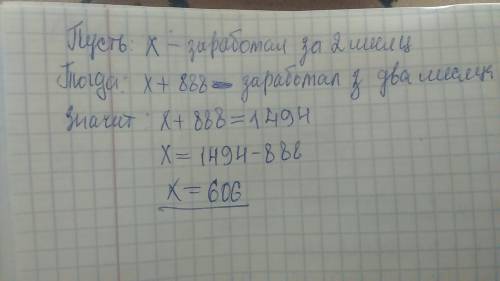 Пусть: х – заработал за 2 месяц
Тогда: х + 888 – заработал з два месяца
Значит: х + 888 = 1494
х = 1494 – 888
х = 606